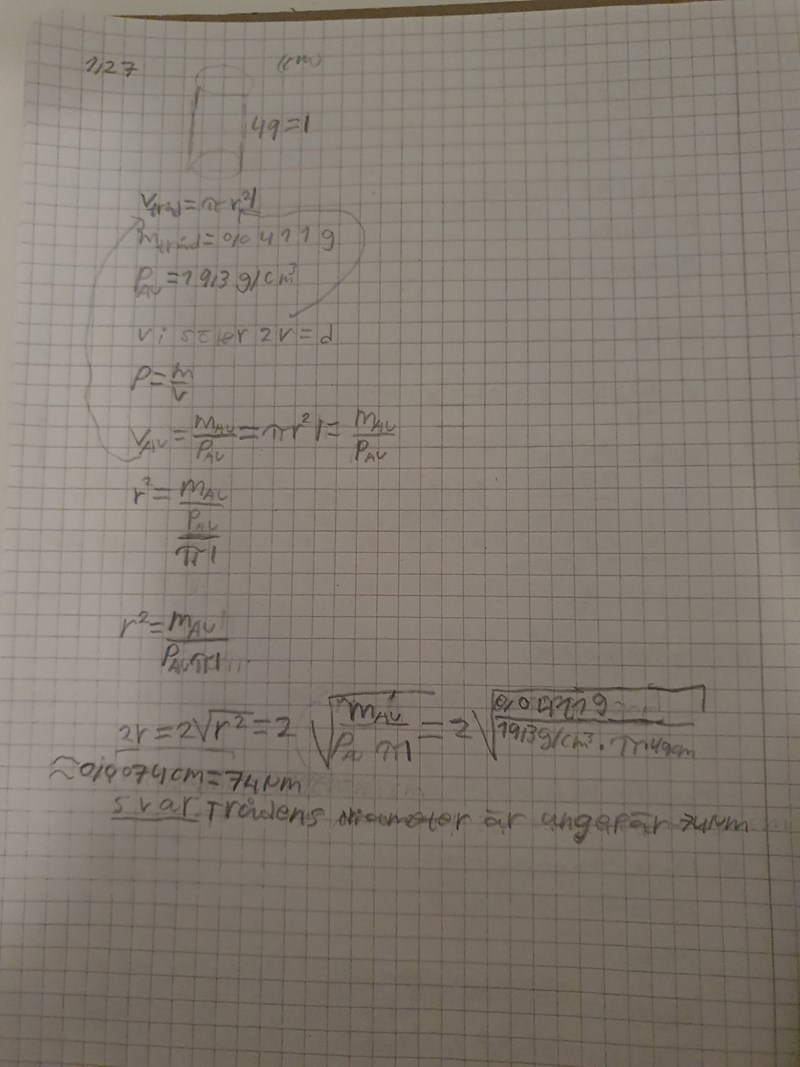 1,27 (cm)
49=l
V_tråd=πr²l
m_tråd=0,0411g
ρ_AU=19,3g/cm³
Vi söker 2r=d
ρ=m/V
V_AU=m_AU/ρ_AU=πr²l=m_AU/ρ_AU
r²=m_AU/ρ_AU/πl
r²=m_AU/ρ_AUπl
2r=2√r²=2√m_AU/ρ_Aπl=2√0,0411g/19,3g/cm³·π·49cm
≈0,0074cm=74μm
Svar. Trådens diameter är ungefär 74μm